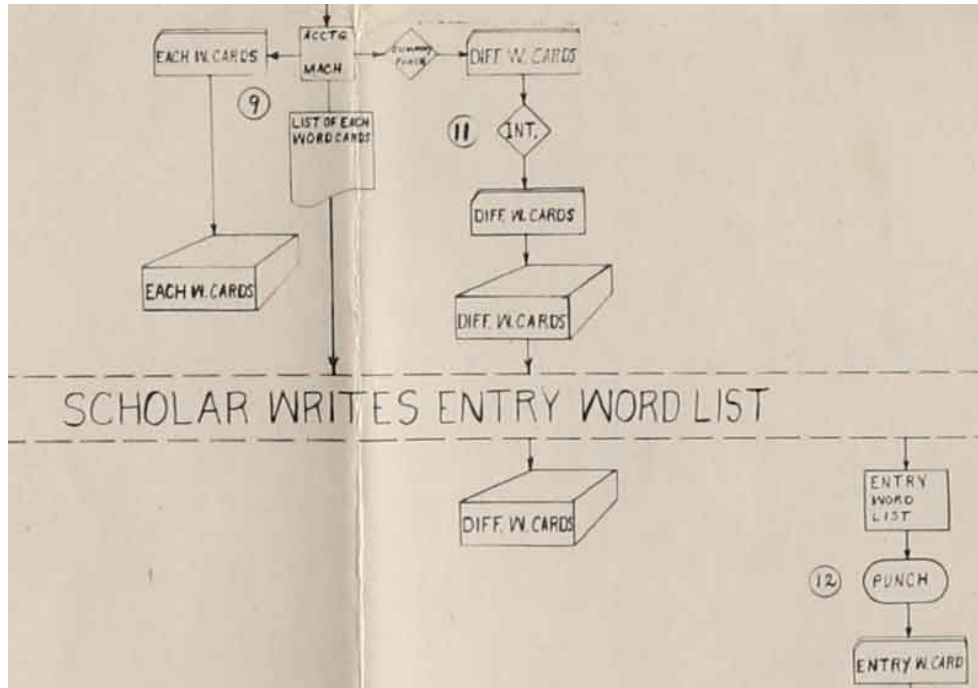 EACH W. CARDS
ACCTG
MACH
SUMMARY
PUNCH
DIFF W. CARDS
9
LIST OF EACH
WORD CARDS
11
INT.
DIFF. W. CARDS
EACH W. CARDS
DIFF. W. CARDS
SCHOLAR WRITES ENTRY WORD LIST
DIFF. W. CARDS
ENTRY
WORD
LIST
12
PUNCH
ENTRY W. CARD